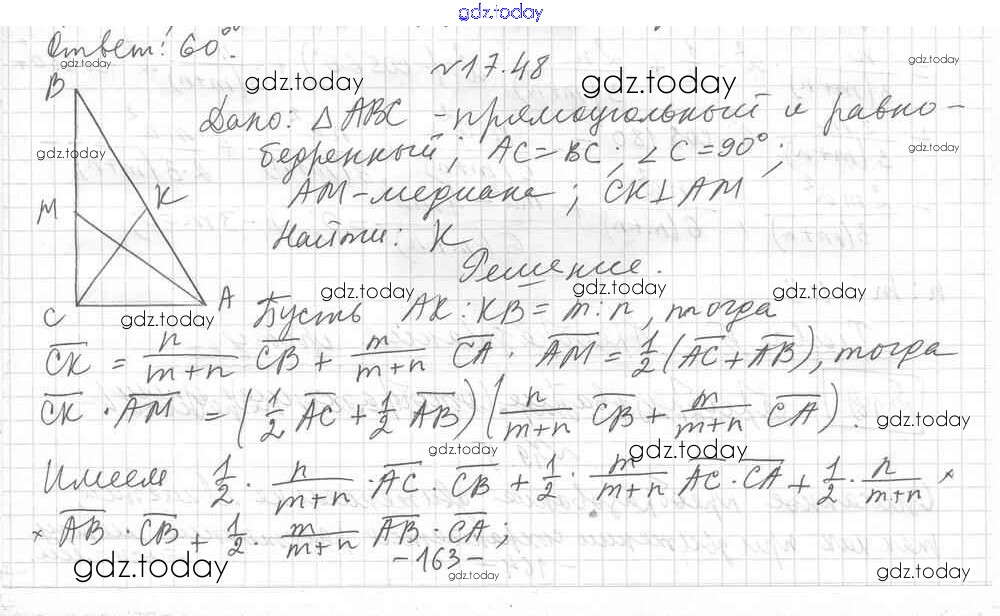 gdz.today
Ответ: 60°.
gdz.today
№17.48
gdz.today
gdz.today
B
Дано: △ABC - прямоугольный и равно-
gdz.today
бедренный; AC=BC; ∠C=90°;
gdz.today
M
K
AM-медиана; CK⊥AM
Найти: K
Решение.
C
A
gdz.today
gdz.today
gdz.today
gdz.today
Пусть AK:KB=m:n, тогда
CK = n/(m+n) CB + m/(m+n) CA. AM = 1/2 (AC+AB), тогда
CK · AM = (1/2 AC + 1/2 AB) (n/(m+n) CB + m/(m+n) CA).
gdz.today
gdz.today
gdz.today
Имеем 1/2 · n/(m+n) · AC · CB + 1/2 · m/(m+n) AC · CA + 1/2 · n/(m+n) ×
× AB · CB + 1/2 · m/(m+n) AB · CA;
-163-
gdz.today
gdz.today
gdz.today